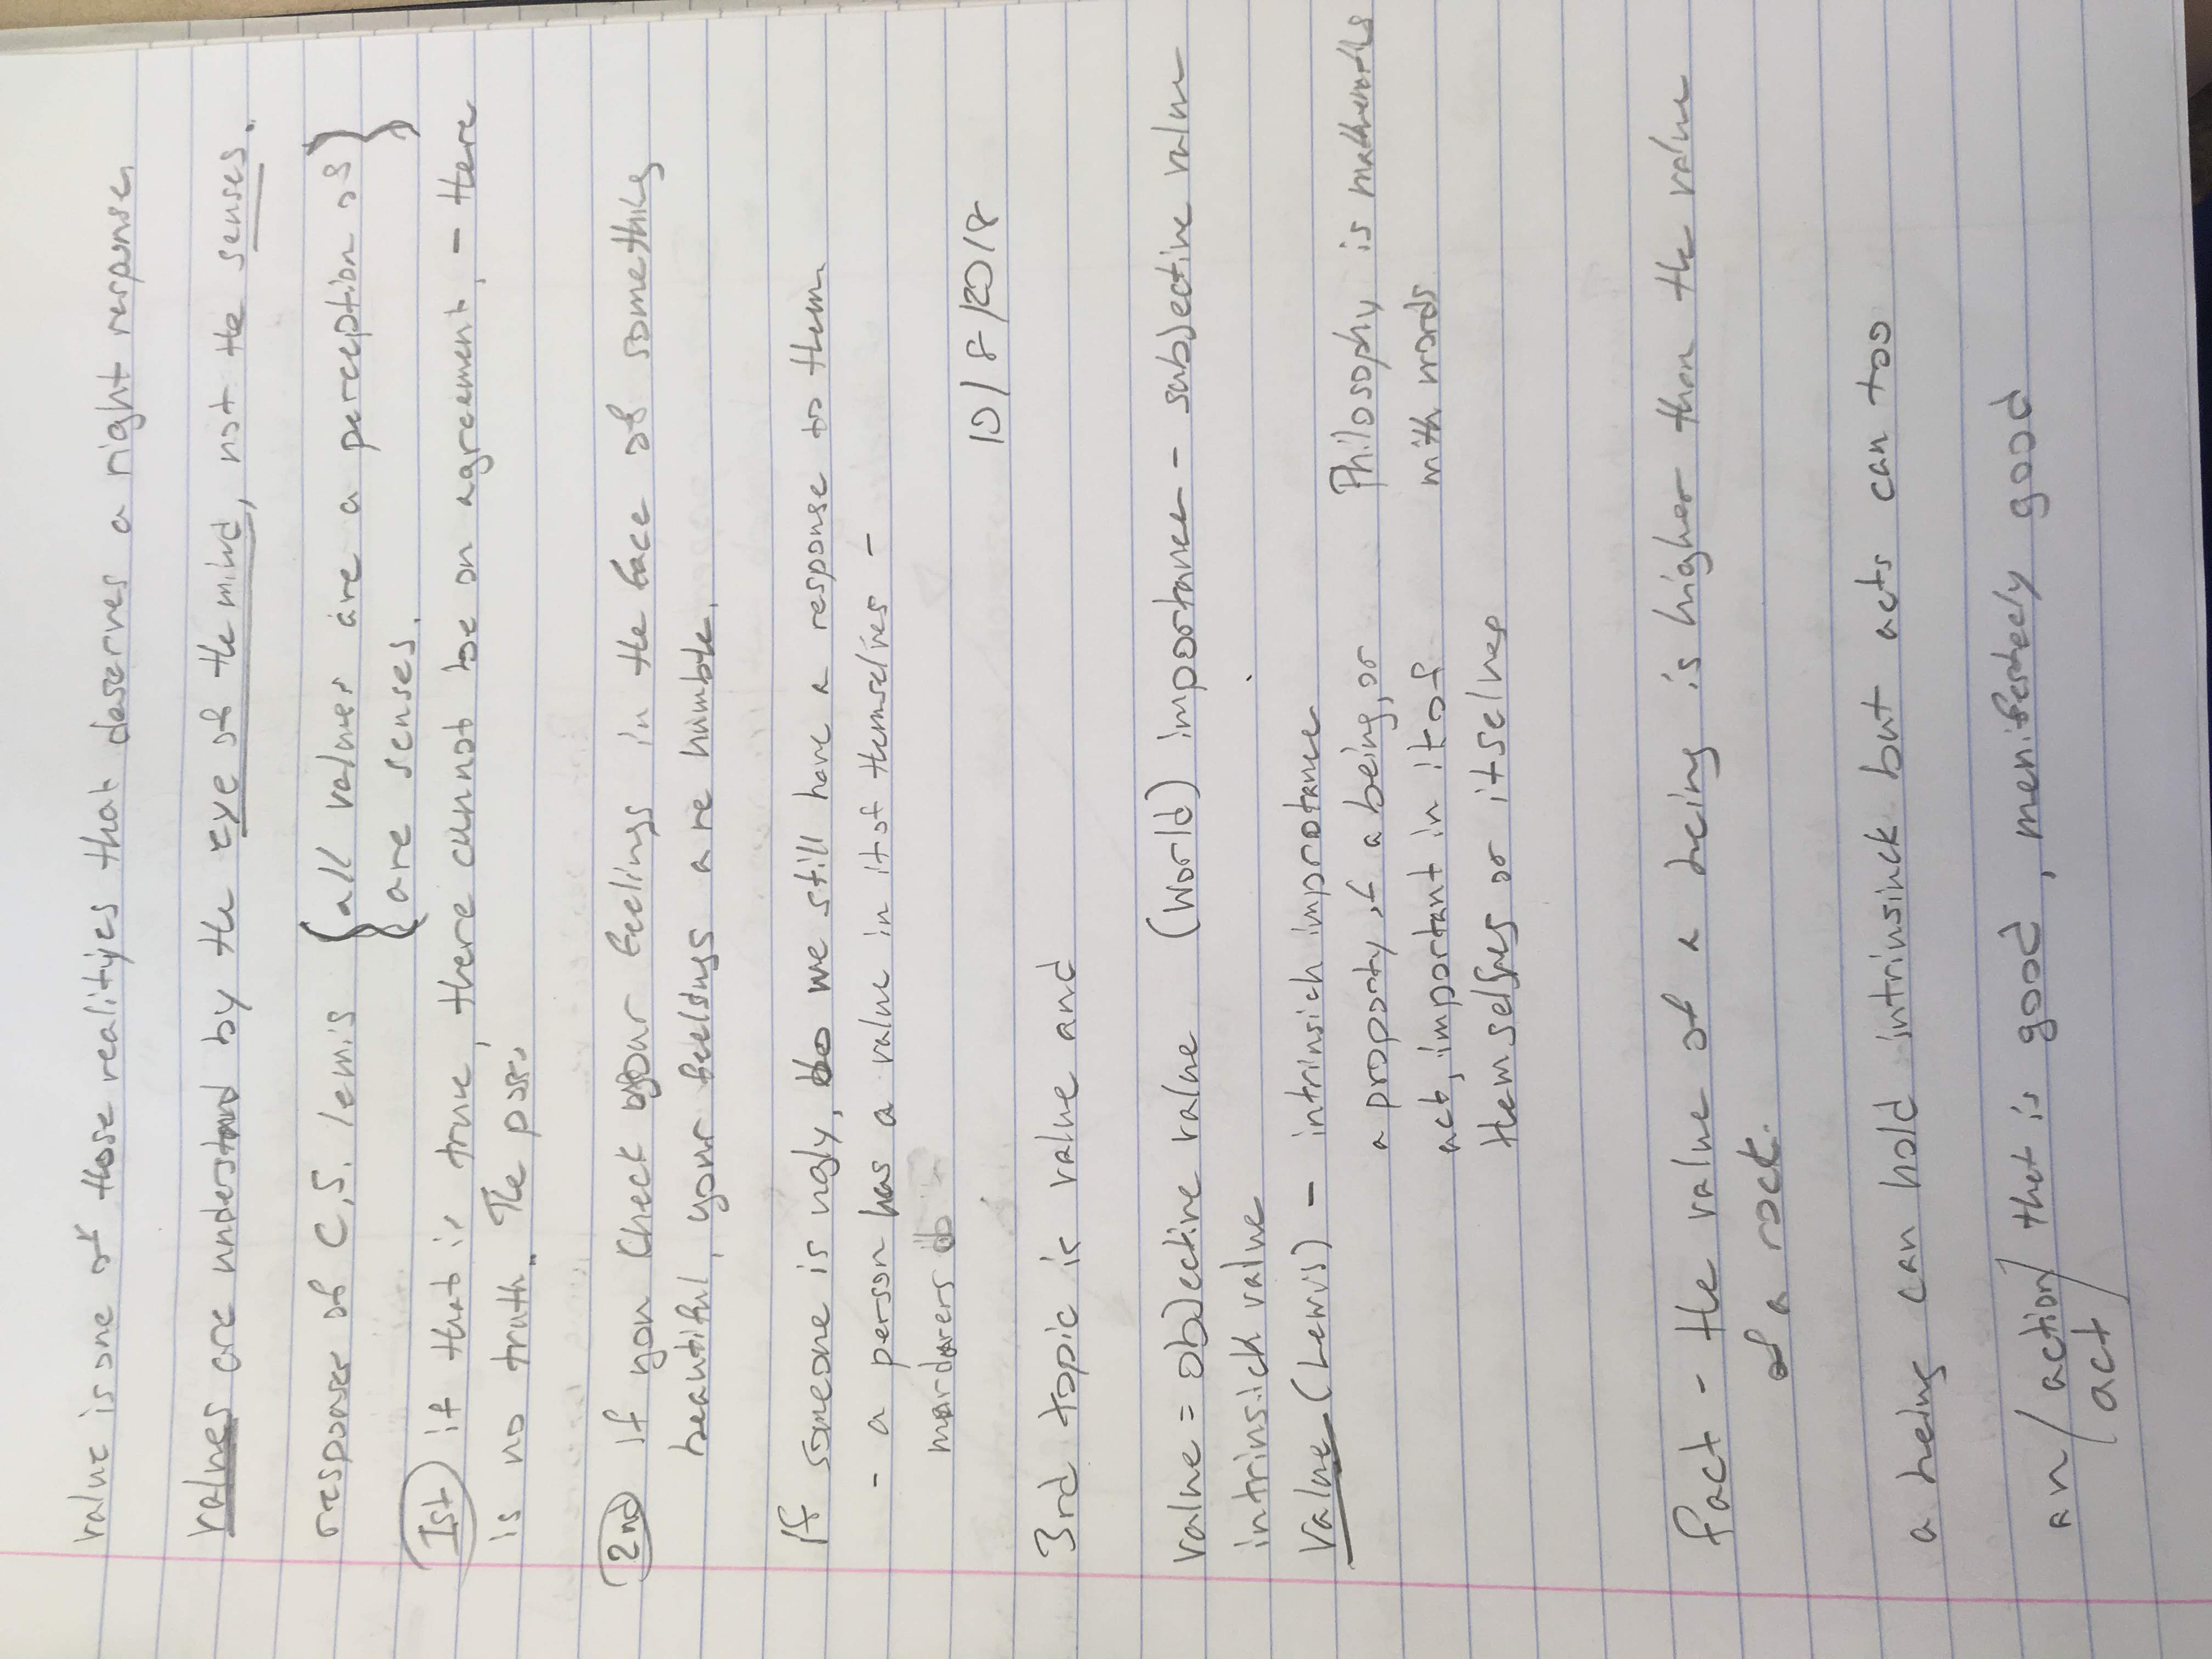 value is one of those realityes that deserves a right response
values are understand by the eye of the mind, not the senses.
response of C.S. lewis {all values are a perception of}
{are senses.
1st if that is true, there cannot be an agreement, - there
is no truth. The
2nd if you check your feelings in the face of something
beautiful, your feelings are humble.
If someone is ugly, do we still have a response to them
- a person has a value in itof themselves -
murderers
10/8/2018
3rd topic is value and
value = objective value (world) importance - subjective value
intrinsick value
Value (Lewis) - intrinsich improtance
a proporty of a being, or Philosophy is mathematics
act, important in itof with words
themselfves or itselves
fact - the value of a being is higher then the value
of a rock.
a being can hold intrinsick but acts can too
an/action/ that is good, menifestely good
(act)